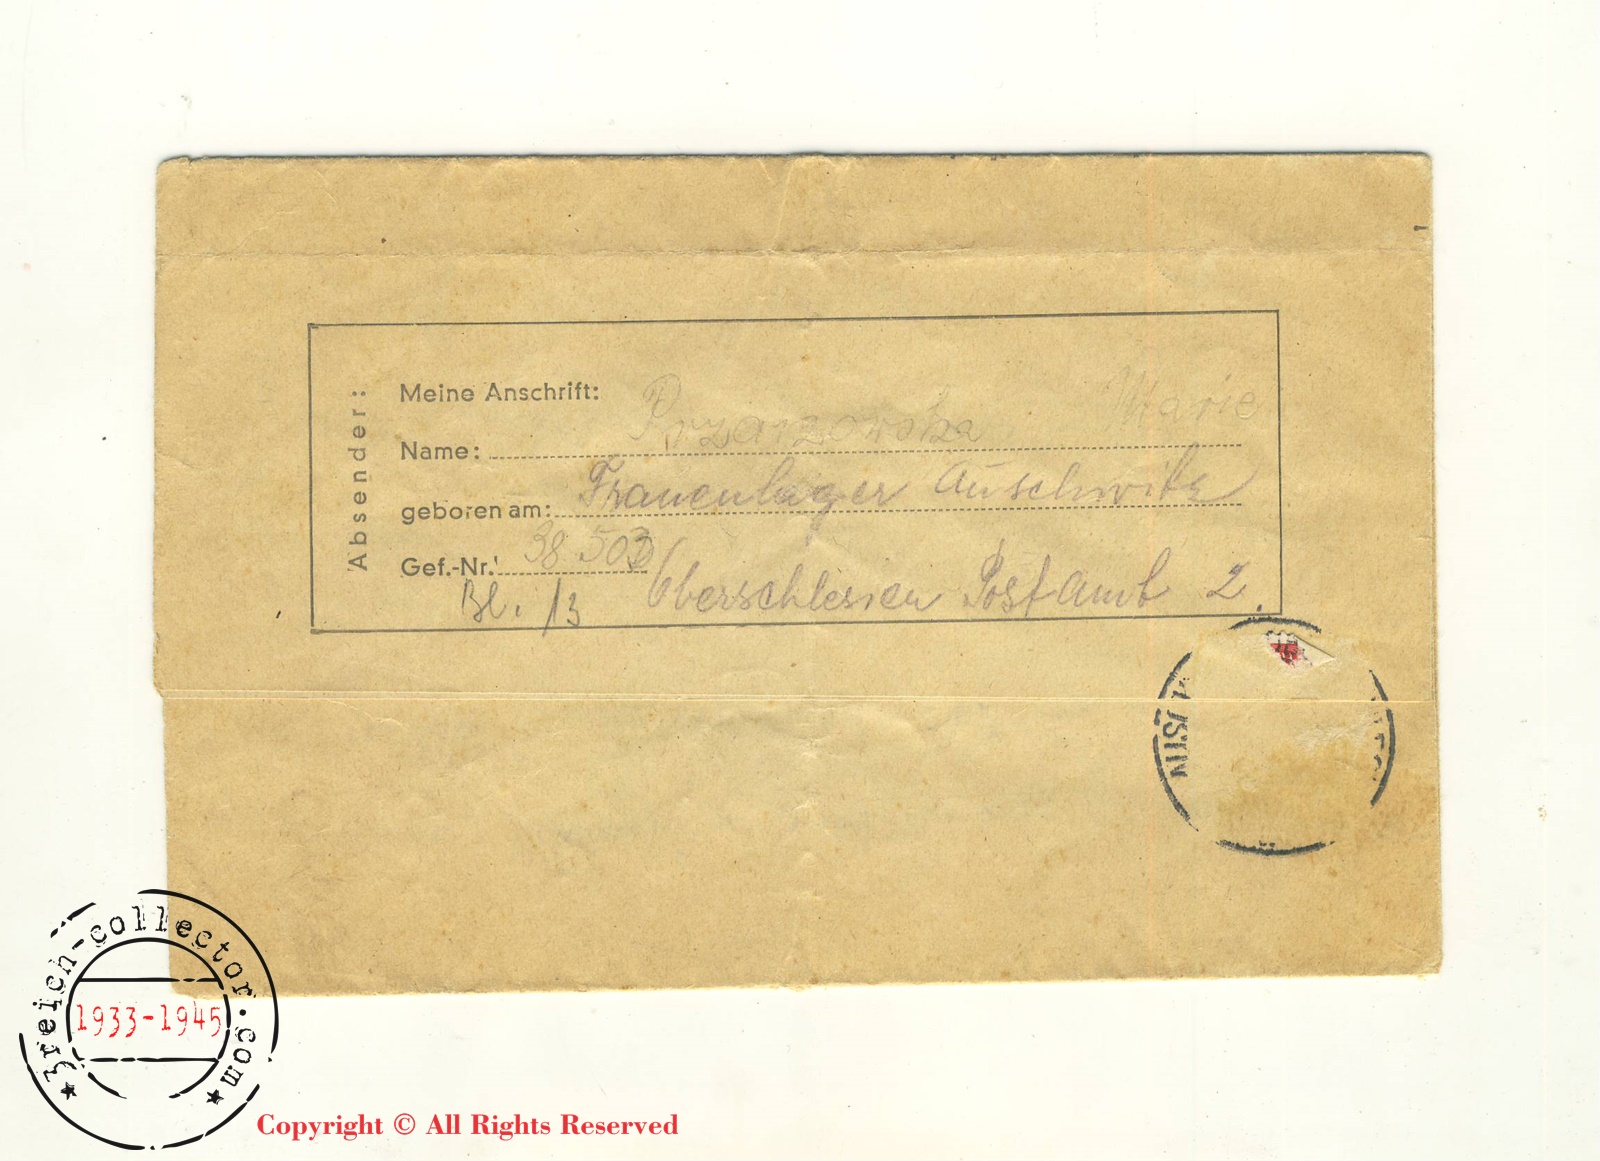 Absender:
Meine Anschrift:
Name: Przarzowska Marie
geboren am: Frauenlager Auschwitz
Gef.-Nr. 38 503 Oberschlesien Postamt 2.
Bl. 13
3reich-collector.com
1933-1945
Copyright © All Rights Reserved